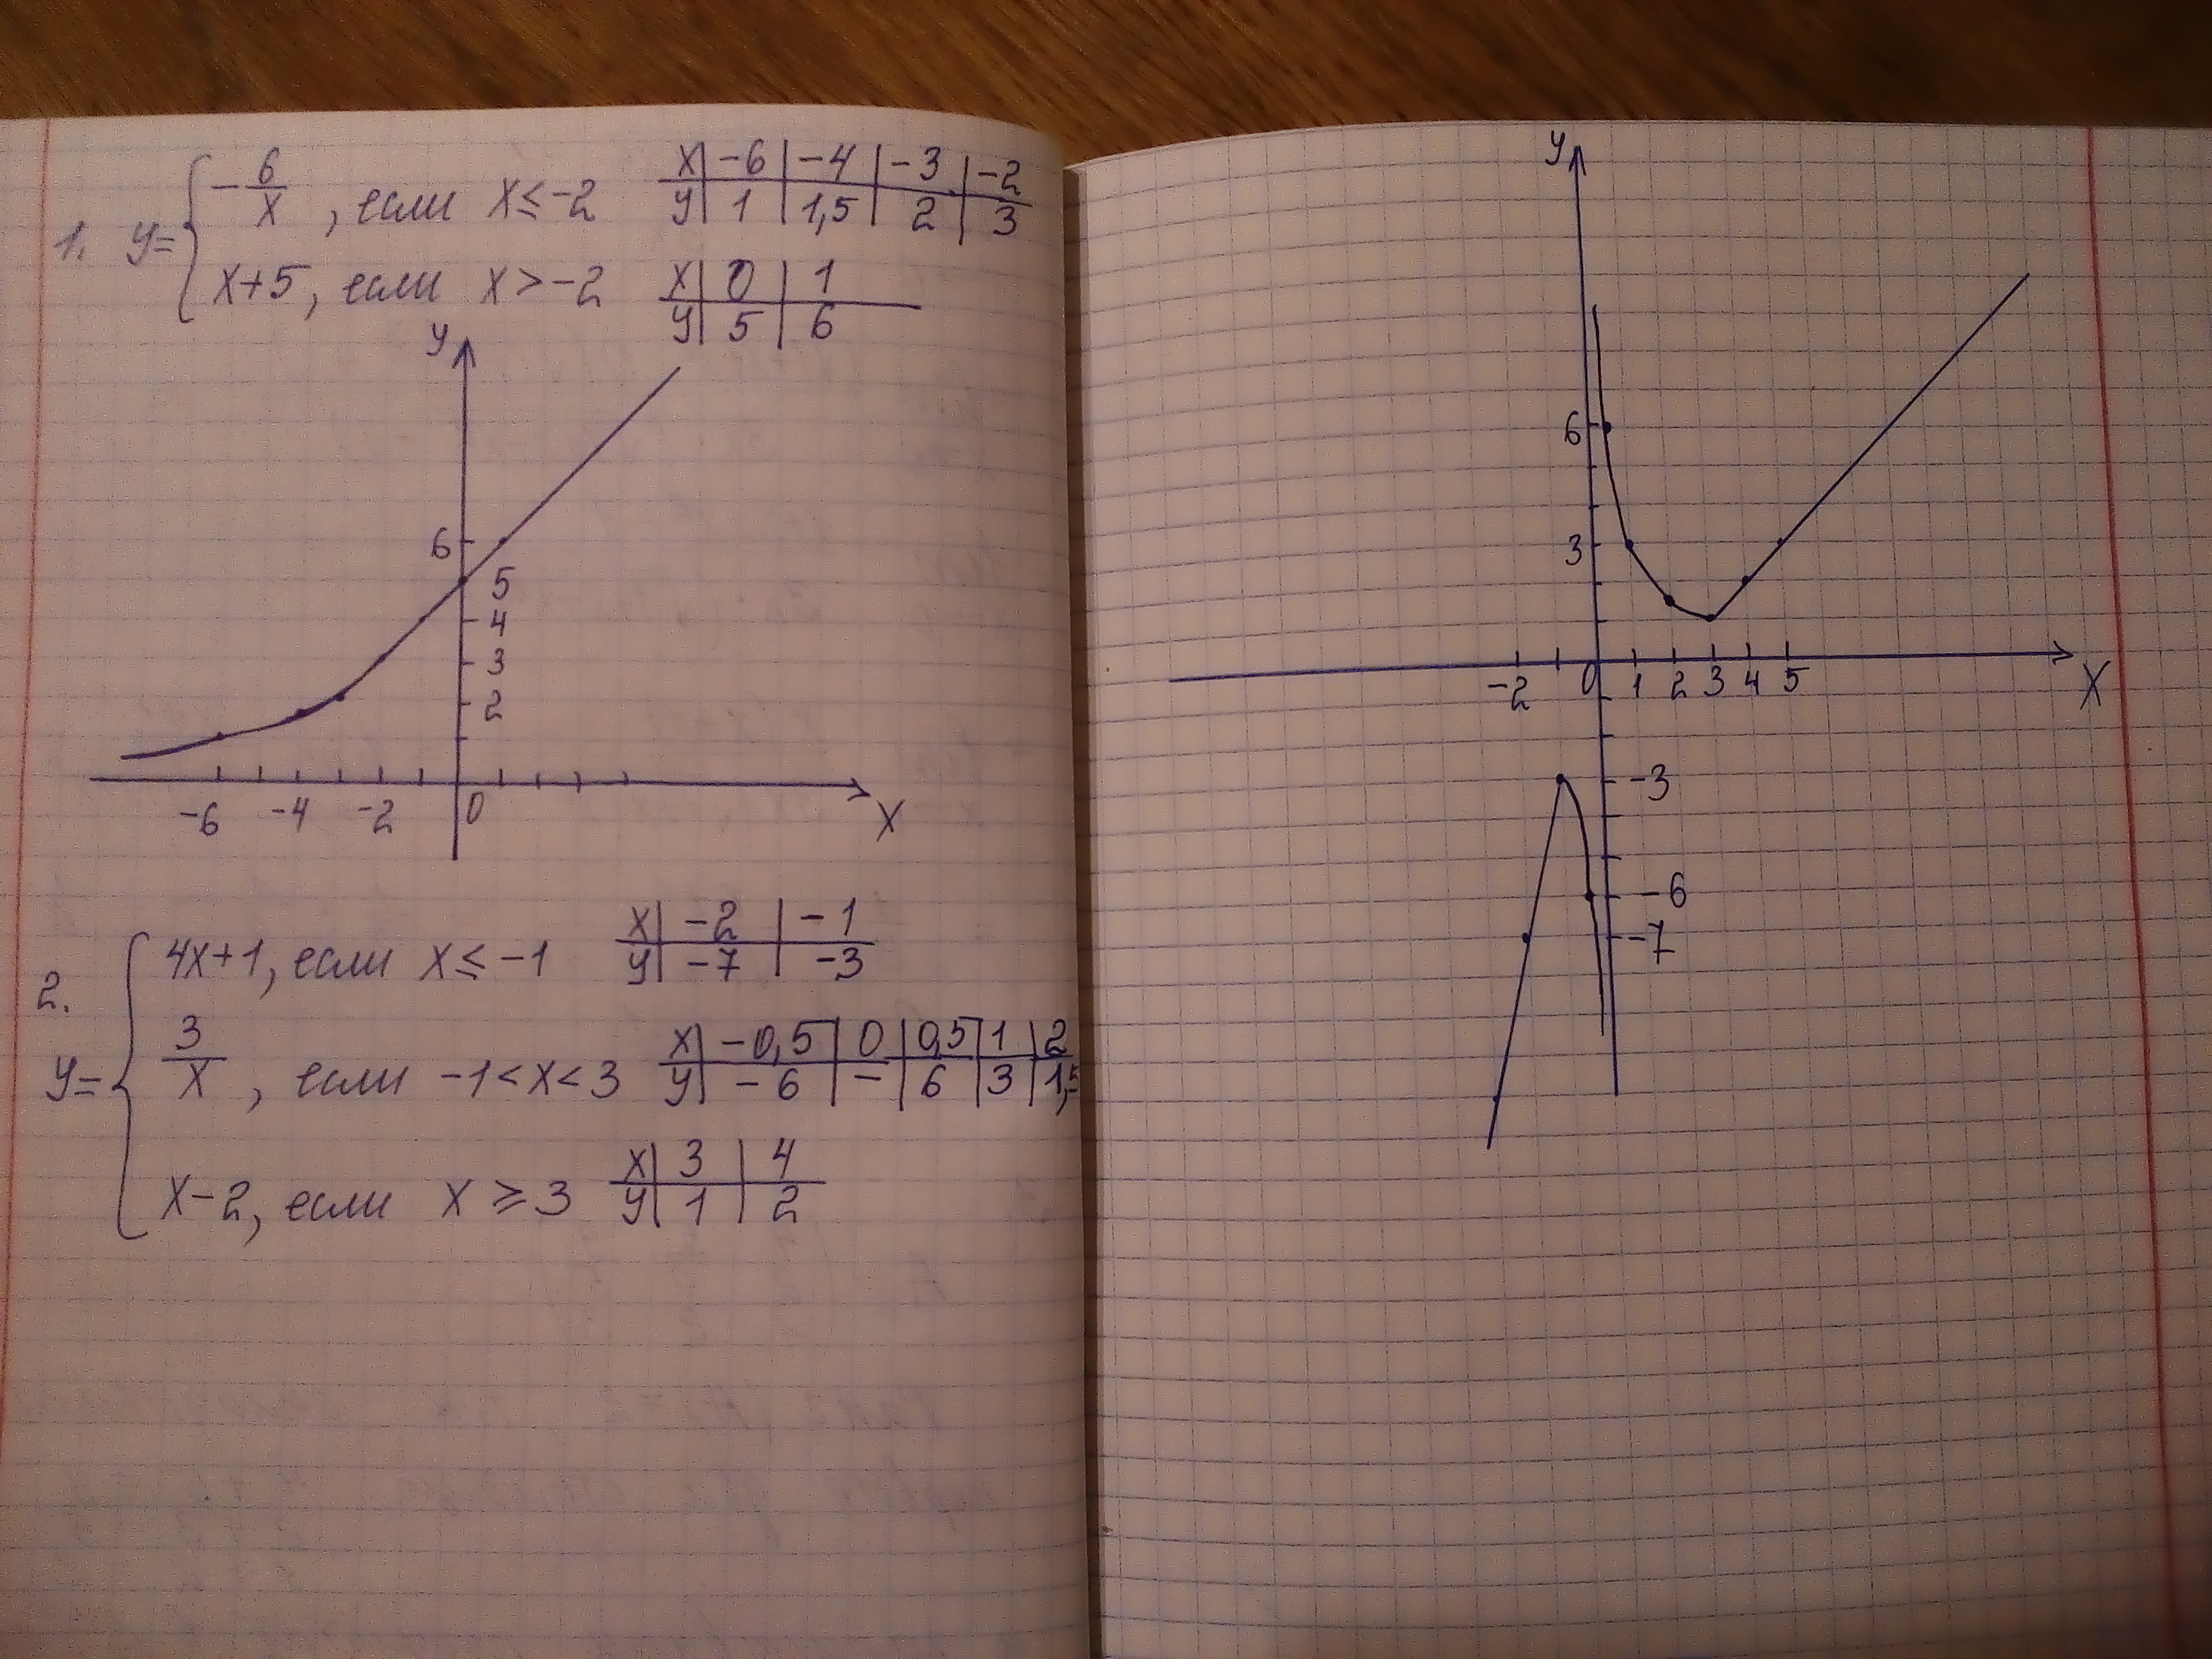 1. y= { -6/x , если x ≤ -2
x | -6 | -4 | -3 | -2
y | 1 | 1,5 | 2 | 3
x+5, если x > -2
x | 0 | 1
y | 5 | 6
y
6
5
4
3
2
-6 -4 -2 0 x
2. y= { 4x+1, если x ≤ -1
x | -2 | -1
y | -7 | -3
3/x , если -1 < x < 3
x | -0,5 | 0 | 0,5 | 1 | 2
y | -6 | – | 6 | 3 | 1,5
x-2, если x ≥ 3
x | 3 | 4
y | 1 | 2
y
6
3
-2 0 1 2 3 4 5 x
-3
-6
-7